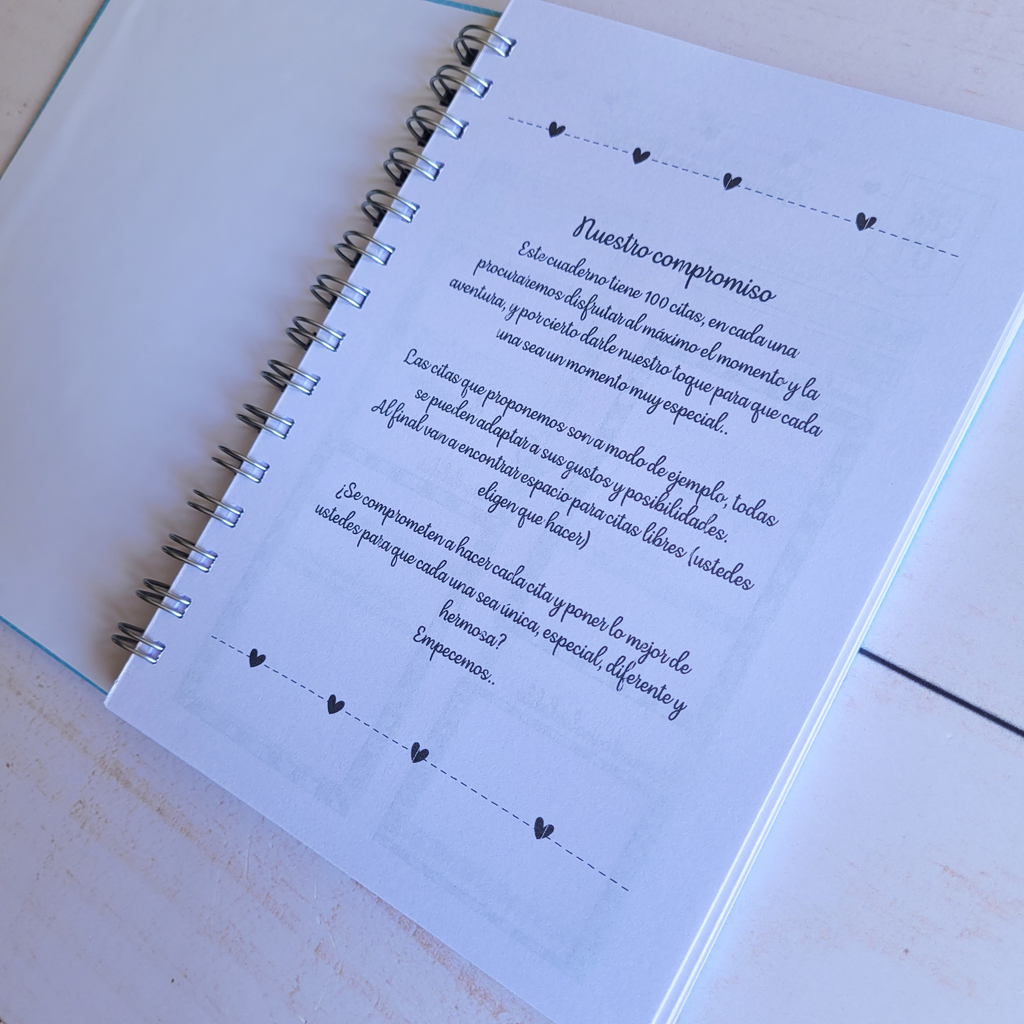 Nuestro compromiso
Este cuaderno tiene 100 citas, en cada una
procuraremos disfrutar al máximo el momento y la
aventura, y por cierto darle nuestro toque para que cada
una sea un momento muy especial..
Las citas que proponemos son a modo de ejemplo, todas
se pueden adaptar a sus gustos y posibilidades.
Al final van a encontrar espacio para citas libres (ustedes
eligen que hacer)
¿Se comprometen a hacer cada cita y poner lo mejor de
ustedes para que cada una sea única, especial, diferente y
hermosa?
Empecemos..